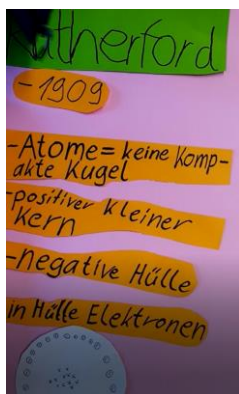 Rutherford
-1909
-Atome= keine Komp-
akte Kugel
-positiver kleiner
Kern
-negative Hülle
in Hülle Elektronen